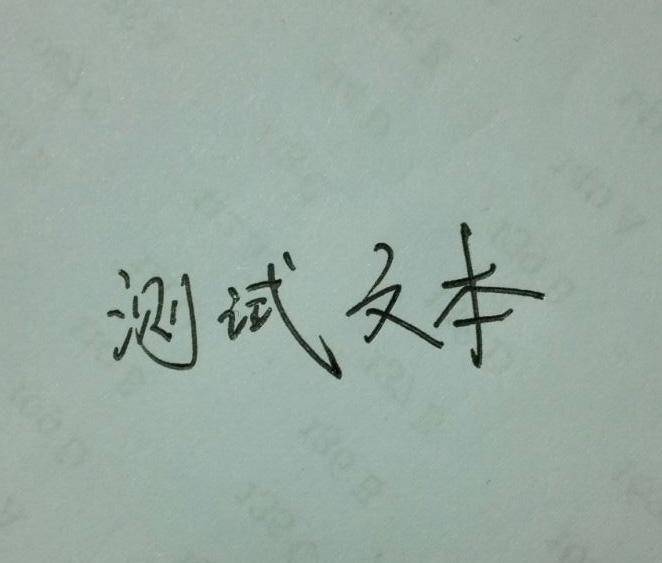 测试文本